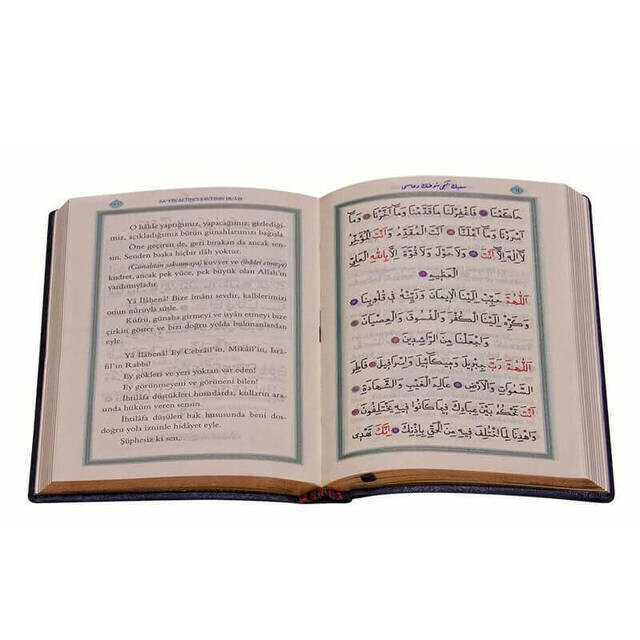 SA'YİN ALTINCI ŞAVTININ DUÂSI
O hâlde yaptığımız, yapacağımız; gizlediği-
miz, açıkladığımız bütün günahlarımızı bağışla.
Öne geçiren de, geri bırakan da ancak sen-
sin. Senden başka hiçbir ilâh yoktur.
(Günahtan sakınmaya) kuvvet ve (ibâdet etmeye)
kudret, ancak pek yüce, pek büyük olan Allah'ın
yardımıyladır.
Yâ İlâhenâ! Bize îmânı sevdir, kalblerimizi
onun nûruyla süsle.
Küfrü, günaha girmeyi ve isyân etmeyi bize
çirkin göster ve bizi doğru yolda bulunanlardan
eyle.
Yâ İlâhenâ! Ey Cebrâîl'in, Mikâîl'in, İsrâ-
fîl'in Rabbi!
Ey gökleri ve yeri yoktan var eden!
Ey görünmeyeni ve görüneni bilen!
İhtilâfa düştükleri hususlarda, kulların ara-
sında hüküm veren sensin.
İhtilâfa düşülen hak hususunda beni dos-
doğru yola izninle hidâyet eyle.
Şüphesiz ki sen,
حَاكَمْنَا فَاغْفِرْلَنَا مَاقَدَّمْنَا وَمَٓا اَخَّرْنَا وَمَٓا
اَسْرَرْنَا وَمَٓا اَعْلَنَّا اَنْتَ الْمُقَدِّمُ وَاَنْتَ الْمُؤَخِّرُ
لَٓا اِلٰهَ اِلَّٓا اَنْتَ وَلَا حَوْلَ وَلَا قُوَّةَ اِلَّا بِاللّٰهِ الْعَلِيِّ
الْعَظِيمِ
اَللّٰهُمَّ حَبِّبْ اِلَيْنَا الْاِيمَانَ وَزَيِّنْهُ فِي قُلُوبِنَا
وَكَرِّهْ اِلَيْنَا الْكُفْرَ وَالْفُسُوقَ وَالْعِصْيَانَ
وَاجْعَلْنَا مِنَ الرَّاشِدِينَ
اَللّٰهُمَّ رَبَّ جِبْرِيلَ وَمِيكَائِيلَ وَاِسْرَافِيلَ فَاطِرَ
السَّمٰوَاتِ وَالْاَرْضِ عَالِمَ الْغَيْبِ وَالشَّهَادَةِ
اَنْتَ تَحْكُمُ بَيْنَ عِبَادِكَ فِيمَا كَانُوا فِيهِ يَخْتَلِفُونَ
وَاهْدِنَا لِمَا اخْتُلِفَ فِيهِ مِنَ الْحَقِّ بِاِذْنِكَ اِنَّكَ تَهْدِي